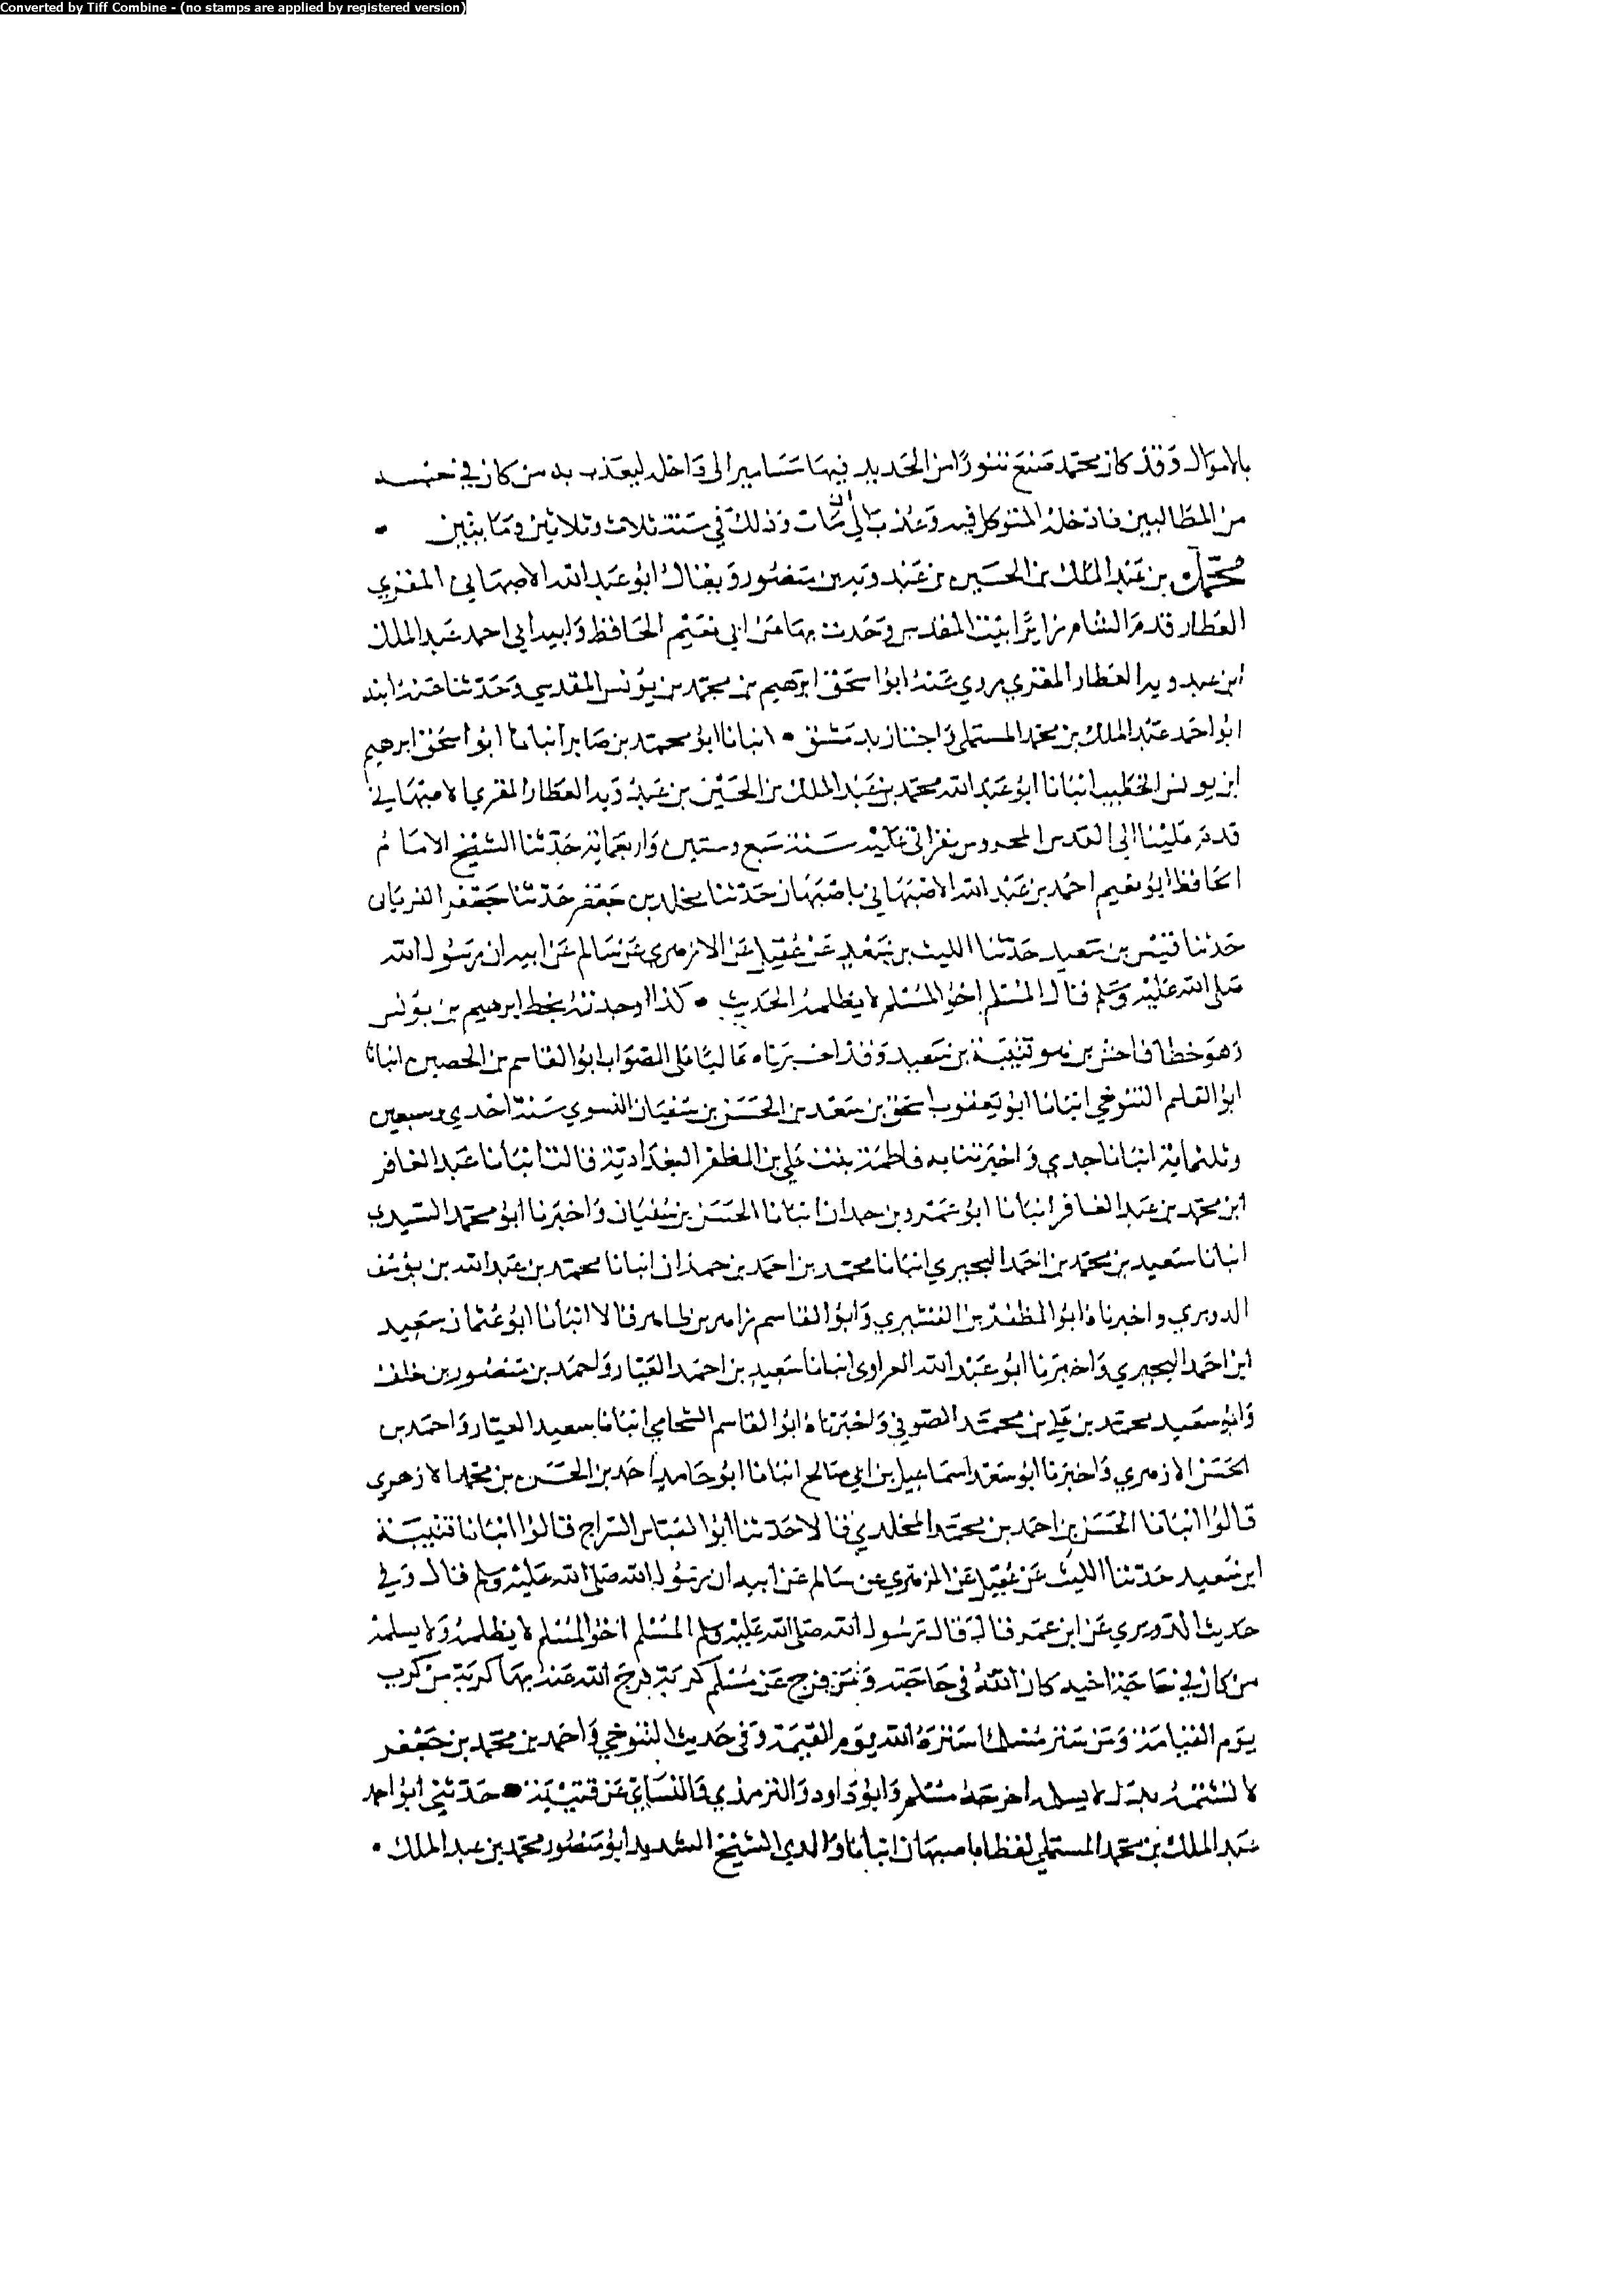 Converted by Tiff Combine - (no stamps are applied by registered version)
بالاموال وقد كان محمد صنع تنورا من الحديد فيها مسامير الى داخله ليعذب به من كان في حبسه
من المطالبين فادخله المتوكل فيه وعذب الى ان مات وذلك في سنة ثلاث وثلاثين ومائتين •
محمد بن عبد الملك بن الحسين بن عبدويه بن منصور ويقال ابو عبد الله الاصبهاني المقري
العطار قدم الشام زايرا بيت المقدس وحدث بها عن ابي نعيم الحافظ وابيه ابي احمد عبد الملك
ابن عبدويه العطار المقري روى عنه ابوا سحق ابرهيم بن محمد بن يونس المقدسي وحدثنا عنه ابنه
ابوا حمد عبد الملك بن محمد المستملي واجتاز بدمشق • انبانا ابو محمد بن صابر انبانا ابوا سحق ابرهيم
ابن يونس الخطيب انبانا ابو عبد الله محمد بن عبد الملك بن الحسين بن عبدويه العطار المقري الاصبهاني
قدم علينا الى القدس المحروس بقراتي عليه سنة سبع وستين واربعماية حدثنا الشيخ الامام
الحافظ ابو نعيم احمد بن عبد الله الاصبهاني باصبهان حدثنا مخلد بن جعفر حدثنا جعفر الفريابي
حدثنا قيس بن سعيد حدثنا الليث بن سعد عن عقيل عن الازهري عن سالم عن ابيه ان رسول الله
صلى الله عليه وسلم قال المسلم اخو المسلم لا يظلمه الحديث • كذا وجدته بخط ابرهيم بن يونس
وهو خطا فاحش بن هو قتيبة بن سعيد وقد اخبرناه عاليا على الصواب ابو القاسم بن الحصين انبانا
ابو القسم التنوخي انبانا ابو يعقوب اسحق بن سعد بن الحسن بن سفيان النسوي سنة احدي وسبعين
وثلثماية انبانا جدي واخبرتنا به فاطمة بنت علي بن المظفر البغدادية قالت انبانا عبد الغافر
ابن محمد بن عبد الغافر انبانا ابو عمرو بن حمدان انبانا الحسن بن سفيان واخبرنا ابو محمد السيدي
انبانا سعيد بن محمد بن احمد البحيري انبانا محمد بن احمد بن حمدان انبانا محمد بن عبد الله بن يوسف
الدويري واخبرناه ابو المظفر بن القشيري وابو القاسم زاهر بن طاهر قالا انبانا ابو عثمان سعيد
ابن احمد البحيري واخبرنا ابو عبد الله الفراوي انبانا سعيد بن احمد العيار واحمد بن منصور بن خلف
وابو سعيد محمد بن علي بن محمد الصوفي واخبرناه ابو القاسم الشحامي انبانا سعيد العيار واحمد بن
الحسن الازهري واخبرنا ابو سعد اسماعيل بن ابي صالح انبانا ابو حامد احمد بن الحسن بن محمد الازهري
قالوا انبانا الحسن بن احمد بن محمد المخلدي قالا حدثنا ابو العباس السراج قالوا انبانا قتيبة
ابن سعيد حدثنا الليث عن عقيل عن الزهري عن سالم عن ابيه ان رسول الله صلى الله عليه وسلم قال وفي
حديث الدويري عن ابن عمر قال قال رسول الله صلى الله عليه وسلم المسلم اخو المسلم لا يظلمه ولا يسلمه
من كان في حاجة اخيه كان الله في حاجته ومن فرج عن مسلم كربة فرج الله عنه بها كربة من كرب
يوم القيامة ومن ستر مسلما ستره الله يوم القيمة وفى حديث التنوخي واحمد بن محمد بن جعفر
لا يشتمه بدل لا يسلمه اخرجه مسلم وابو داود والترمذي والنساي عن قتيبة • حدثني ابوا حمد
عبد الملك بن محمد المستملي لفظا باصبهان انبانا والدي الشيخ السديد ابو منصور محمد بن عبد الملك •